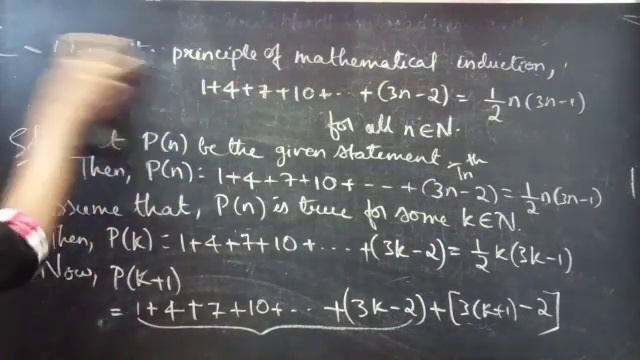 principle of mathematical induction,
1+4+7+10+...+(3n-2) = 1/2 n(3n-1)
for all n∈N.
P(n) be the given statement
Then, P(n): 1+4+7+10+----+(3n-2) = 1/2 n(3n-1)
Assume that, P(n) is true for some k∈N.
Then, P(k) = 1+4+7+10+....+(3k-2) = 1/2 k(3k-1)
Now, P(k+1)
= 1+4+7+10+...+(3k-2)+[3(k+1)-2]